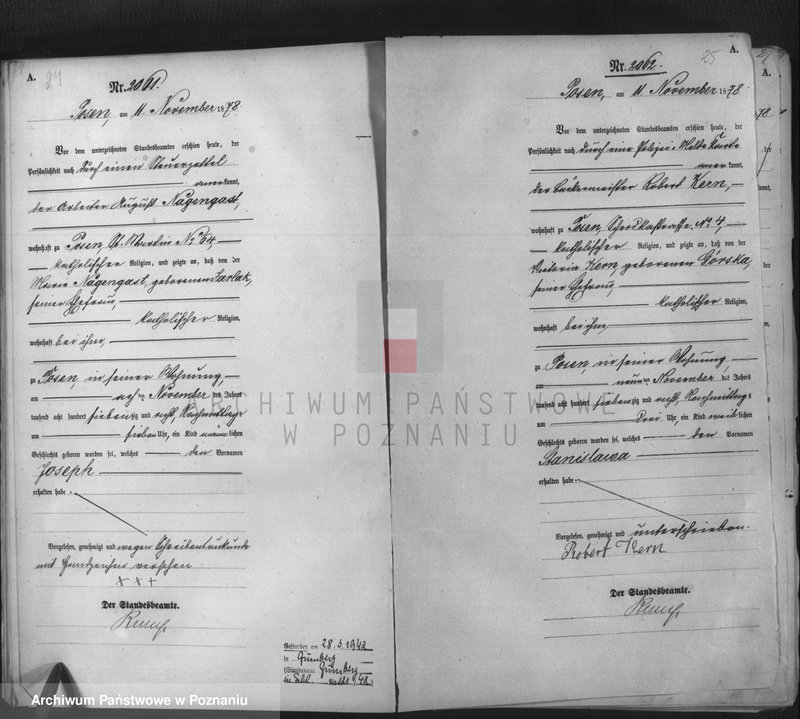 A.
24
Nr. 2061.
Posen, am 11. November 1878.
Vor dem unterzeichneten Standesbeamten erschien heute, der
Persönlichkeit nach durch einen Steuerzettel
anerkannt,
der Arbeiter August Nagengast,
wohnhaft zu Posen, St. Martin No 64
katholischer Religion, und zeigte an, daß von der
Nagengast, geborenen
seiner Ehefrau,
katholischer Religion,
wohnhaft bei ihm,
zu Posen, in seiner Wohnung,
am November des Jahres
tausend acht hundert siebenzig und acht, Nachmittag
um sieben Uhr, ein Kind männlichen
Geschlechts geboren worden sei, welches den Vornamen
Joseph
erhalten habe.
Vorgelesen, genehmigt und wegen Schreibensunkunde
mit Handzeichen versehen.
+++
Der Standesbeamte.
Gestorben am 28.3.1942
in
(Standesamt
A.
25
Nr. 2062.
Posen, am 11. November 1878.
Vor dem unterzeichneten Standesbeamten erschien heute, der
Persönlichkeit nach durch eine Polizei-Melde Karte
anerkannt,
der Bäckermeister Robert Kern,
wohnhaft zu Posen, No 4,
katholischer Religion, und zeigte an, daß von der
Victoria Kern geborenen Górska,
seiner Ehefrau,
katholischer Religion,
wohnhaft bei ihm
zu Posen, in seiner Wohnung,
am neunten November des Jahres
tausend acht hundert siebenzig und acht, Nachmittag
um drei Uhr, ein Kind weiblichen
Geschlechts geboren worden sei, welches den Vornamen
Stanislawa
erhalten habe
Vorgelesen, genehmigt und unterschrieben.
Robert Kern
Der Standesbeamte.
A.
ARCHIWUM PAŃSTWOWE
W POZNANIU
Archiwum Państwowe w Poznaniu